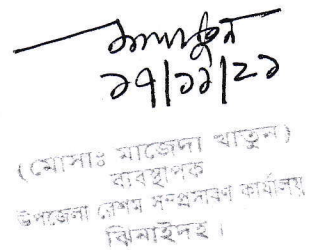 ১৭/১১/২১
(মোসাঃ মাজেদা খাতুন)
ব্যবস্থাপক
উপজেলা রেশম সম্প্রসারণ কার্যালয়
ঝিনাইদহ।